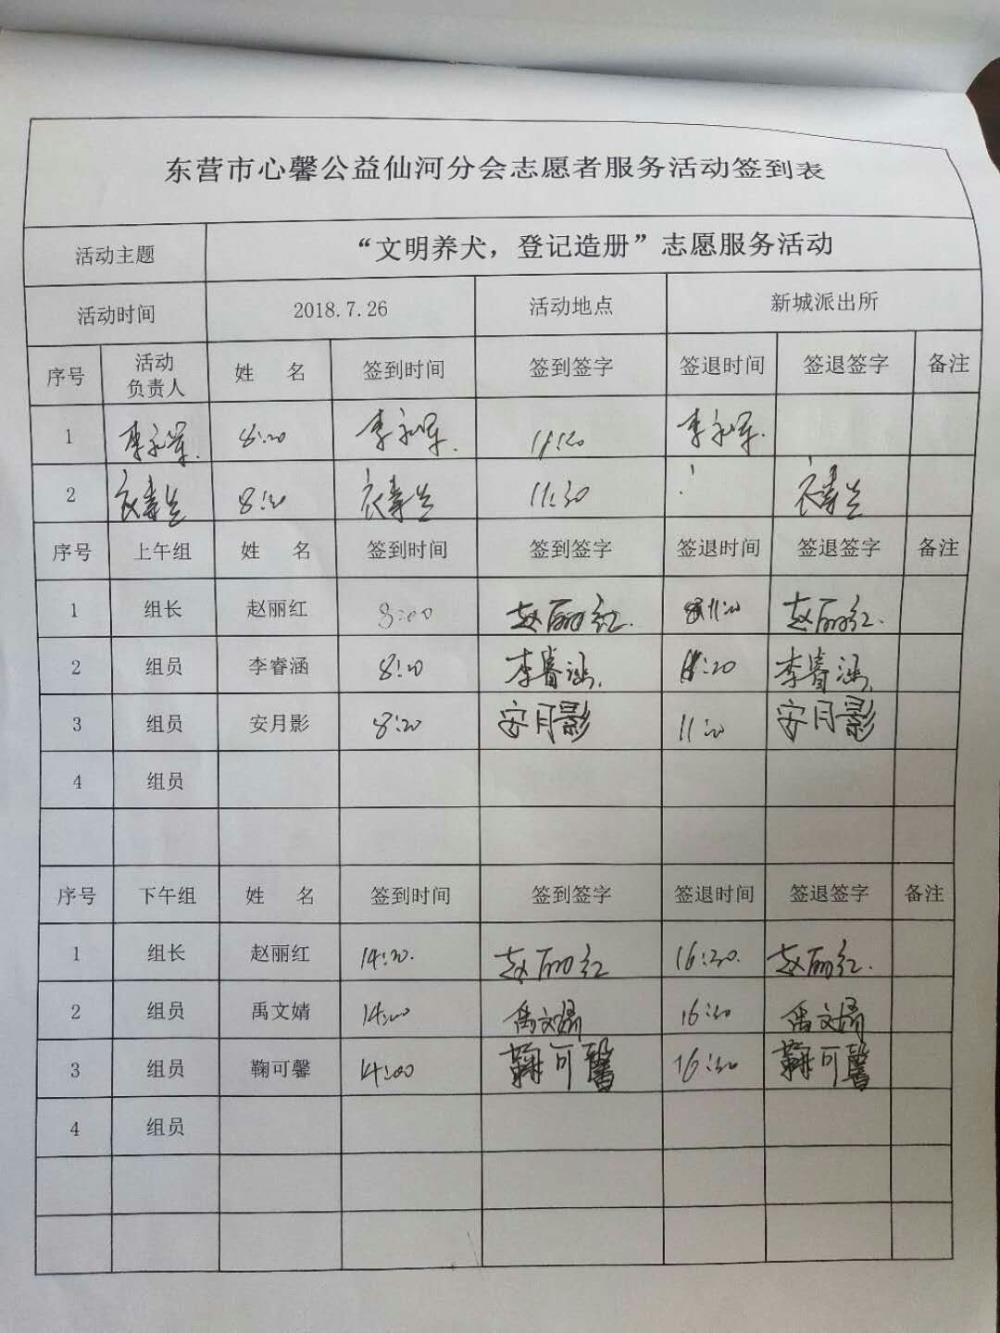 东营市心馨公益仙河分会志愿者服务活动签到表
活动主题 “文明养犬，登记造册”志愿服务活动
活动时间 2018.7.26 活动地点 新城派出所
序号 活动负责人 姓 名 签到时间 签到签字 签退时间 签退签字 备注
1 李永军. 8:20 李永军. 11:20 李永军.
2 衣寿兰 8:30 衣寿兰 11:30 衣寿兰
序号 上午组 姓 名 签到时间 签到签字 签退时间 签退签字 备注
1 组长 赵丽红 8:00 赵丽红. 11:20 赵丽红.
2 组员 李睿涵 8:20 李睿涵. 11:20 李睿涵.
3 组员 安月影 8:20 安月影 11:20 安月影
4 组员
序号 下午组 姓 名 签到时间 签到签字 签退时间 签退签字 备注
1 组长 赵丽红 14:20. 赵丽红 16:30. 赵丽红.
2 组员 禹文婧 14:00 禹文婧 16:30 禹文婧
3 组员 鞠可馨 14:00 鞠可馨 16:30 鞠可馨
4 组员